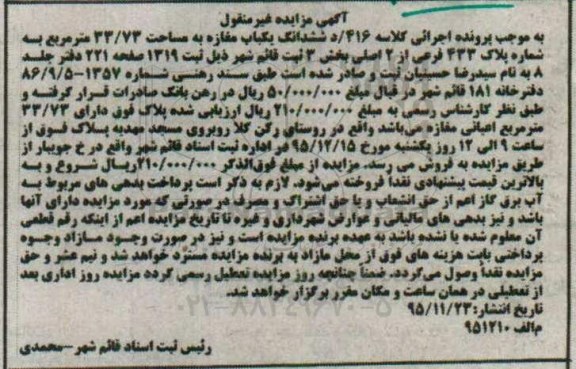 آگهی مزایده غیرمنقول
به موجب پرونده اجرائی کلاسه ۴۱۶/د ششدانگ یکباب مغازه به مساحت ۳۳/۷۳ مترمربع به
شماره پلاک ۴۳۳ فرعی از ۲ اصلی بخش ۳ ثبت قائم شهر ذیل ثبت ۱۳۱۹ صفحه ۲۲۱ دفتر جلد
۸ به نام سیدرضا حسینیان ثبت و صادر شده است طبق سند رهنی شماره ۱۳۵۷-۸۶/۹/۵
دفترخانه ۱۸۱ قائم شهر در قبال مبلغ ۵۰/۰۰۰/۰۰۰ ریال در رهن بانک صادرات قرار گرفته و
طبق نظر کارشناس رسمی به مبلغ ۲۱۰/۰۰۰/۰۰۰ ریال ارزیابی شده پلاک فوق دارای ۳۳/۷۳
مترمربع اعیانی مغازه می‌باشد واقع در روستای رکن کلا روبروی مسجد مهدیه پلاک فوق از
ساعت ۹ الی ۱۲ روز یکشنبه مورخ ۹۵/۱۲/۱۵ در اداره ثبت اسناد قائم شهر واقع در خ جویبار از
طریق مزایده به فروش می رسد. مزایده از مبلغ فوق‌الذکر ۲۱۰/۰۰۰/۰۰۰ریال شروع و به
بالاترین قیمت پیشنهادی نقدا فروخته می‌شود. لازم به ذکر است پرداخت بدهی های مربوط به
آب برق گاز اعم از حق انشعاب و یا حق اشتراک و مصرف در صورتی که مورد مزایده دارای آنها
باشد و نیز بدهی های مالیاتی و عوارض شهرداری و غیره تا تاریخ مزایده اعم از اینکه رقم قطعی
آن معلوم شده یا نشده باشد به عهده برنده مزایده است و نیز در صورت وجود مازاد وجوه
پرداختی بابت هزینه های فوق از محل مازاد به برنده مزایده مسترد خواهد شد و نیم عشر و حق
مزایده نقدا وصول می‌گردد. ضمنا چنانچه روز مزایده تعطیل رسمی گردد مزایده روز اداری بعد
از تعطیلی در همان ساعت و مکان مقرر برگزار خواهد شد.
تاریخ انتشار: ۹۵/۱۱/۲۳
م‌الف ۹۵۱۲۱۰
رئیس ثبت اسناد قائم شهر-محمدی